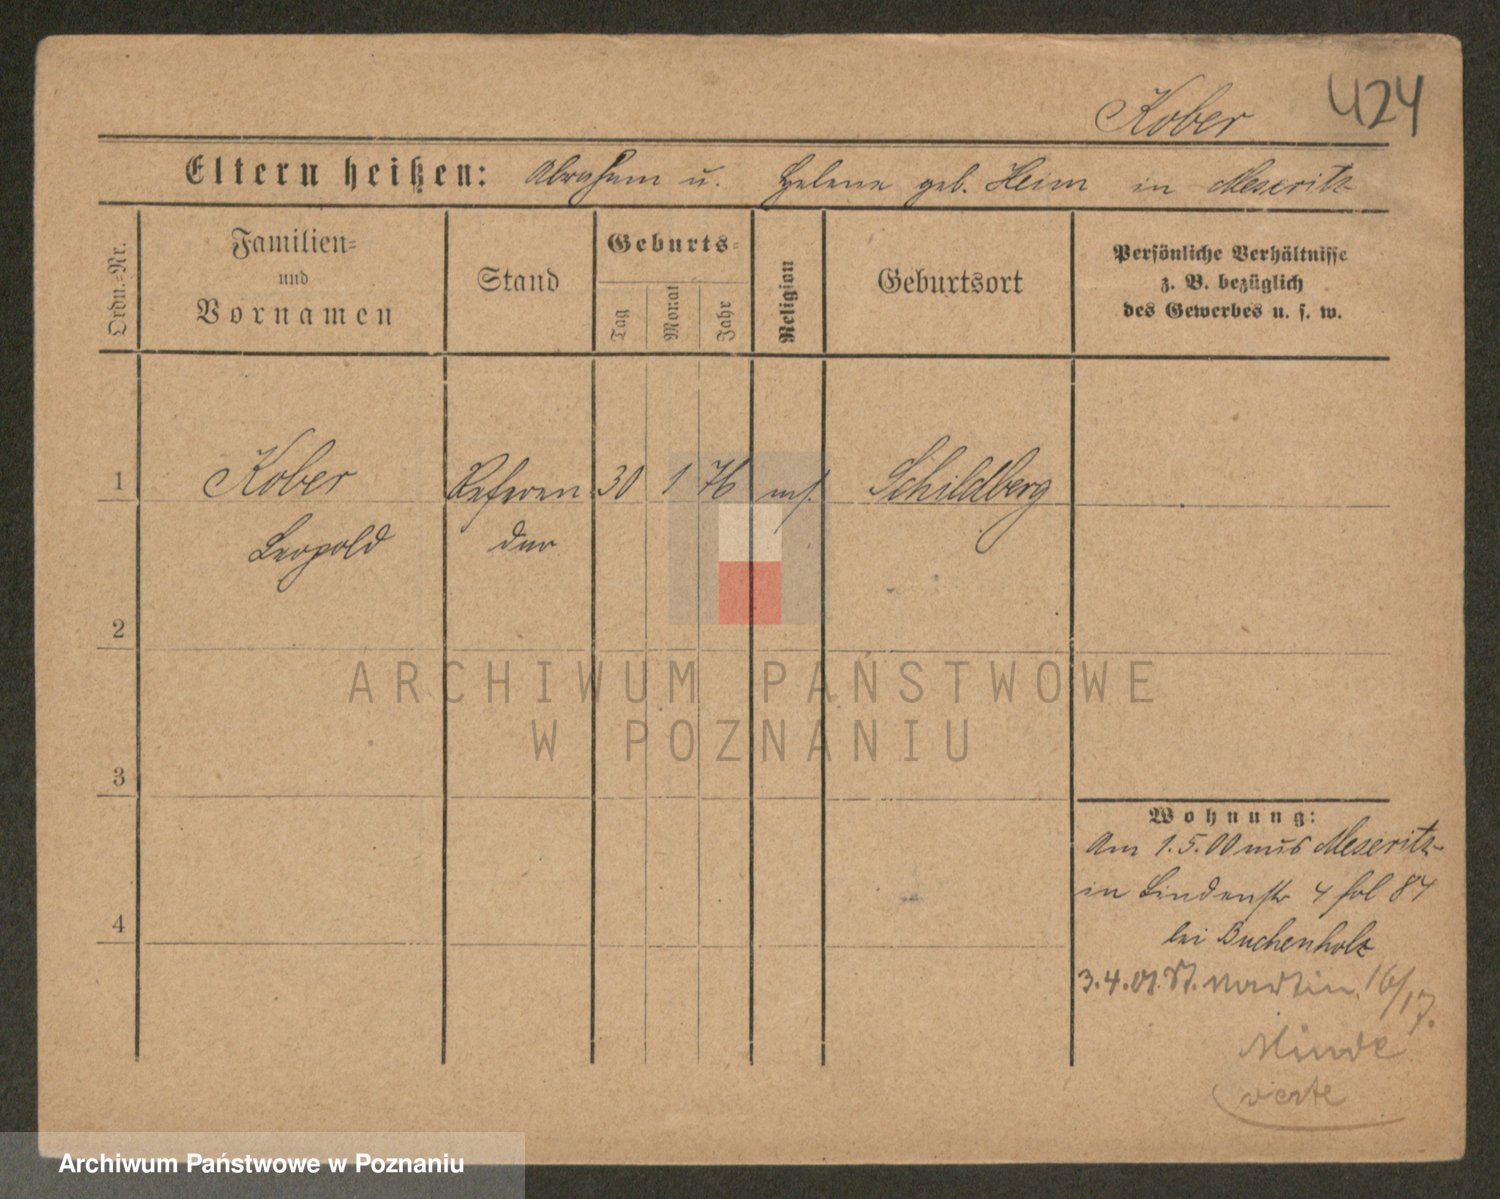 Kober 424
Eltern heißen: Abraham u. Helene geb. Heim in Meseritz
Ordn.=Nr.
Familien=
und
Vornamen
Stand
Geburts=
Tag
Monat
Jahr
Religion
Geburtsort
Persönliche Verhältnisse
z. B. bezüglich
des Gewerbes u. s. w.
1 Kober Referen 30 1 76 mos. Schildberg
Leopold dar
2
3
4
Wohnung:
Am 1.5.00 aus Meseritz
in Lindenstr 4 fol 84
bei Buchenholz
3.4.01. St. Martin 16/17.
Minde
verte
ARCHIWUM PAŃSTWOWE
W POZNANIU
Archiwum Państwowe w Poznaniu